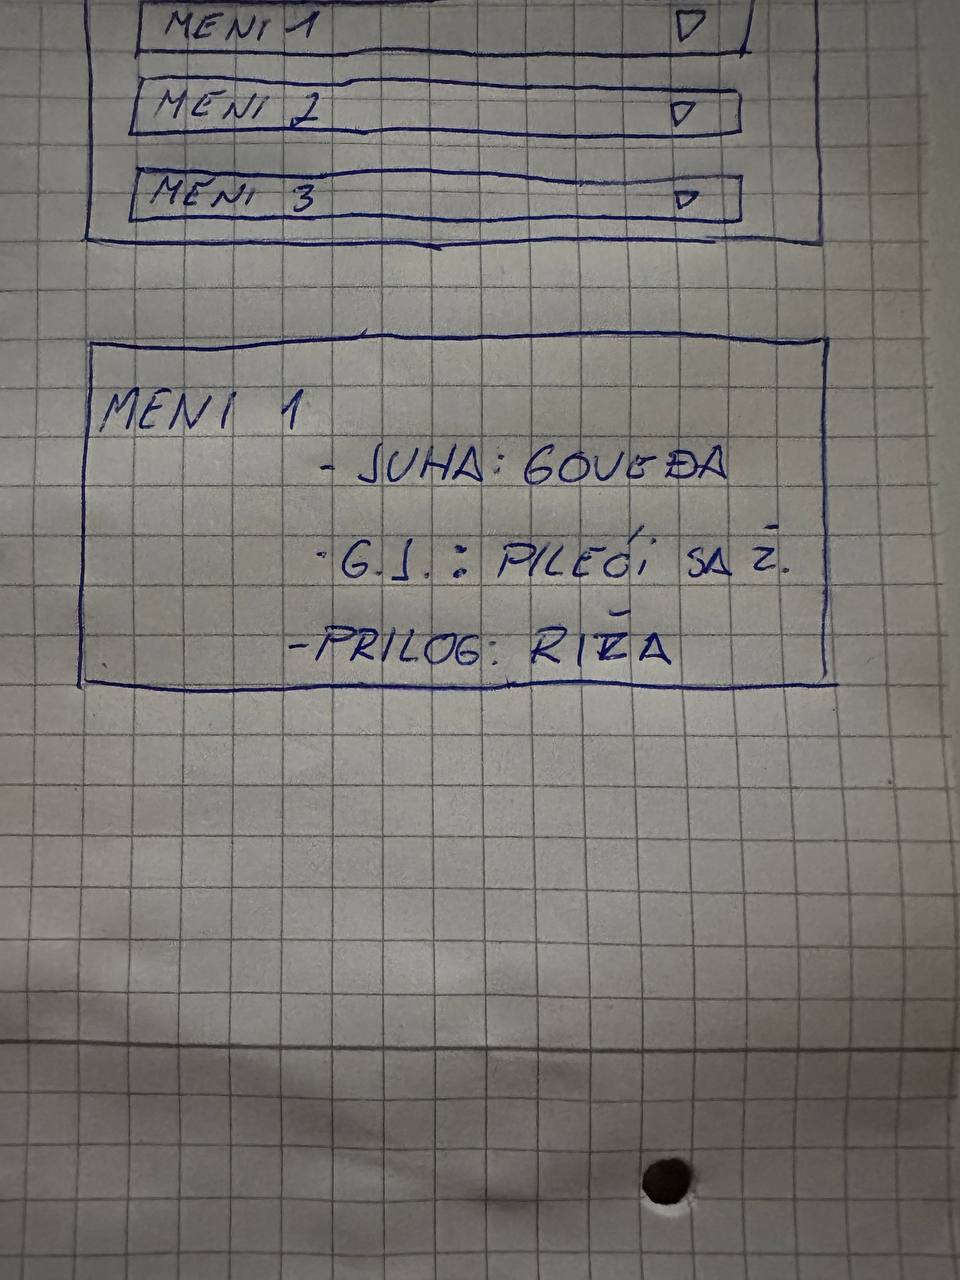 MENI 1
MENI 2
MENI 3
MENI 1
- JUHA: GOVEĐA
- G.J. : PILEĆI SA Ž.
- PRILOG: RIŽA